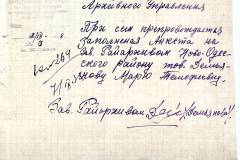 Архивного Управления
При сем препровождается
заполненая Анкета на
Зав. Райархивом Ново-Одес-
ского району тов. Демья-
нову Марю Тимофеевну.
Зав. Райархивом Демьянова